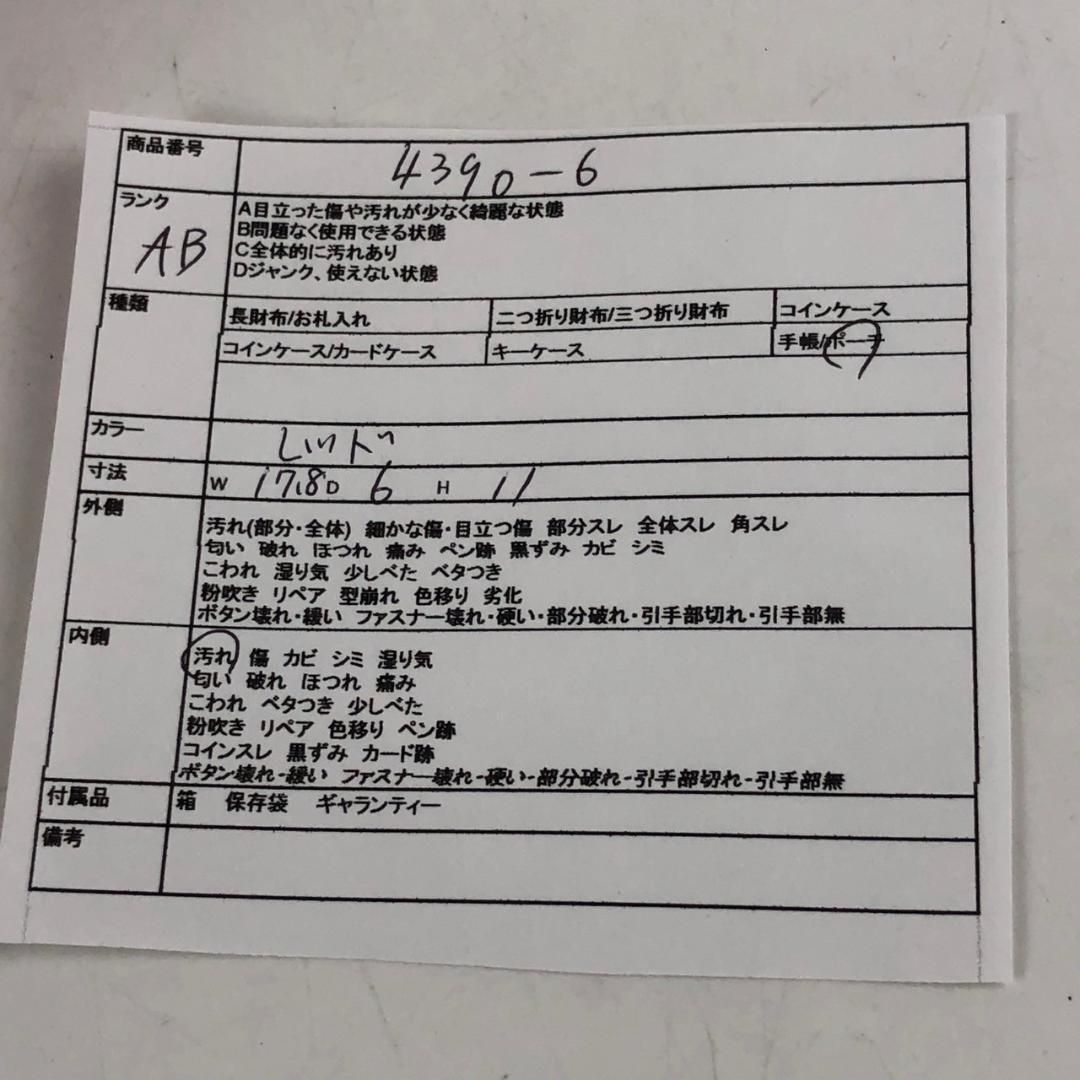 商品番号 4390-6
ランク AB
A目立った傷や汚れが少なく綺麗な状態
B問題なく使用できる状態
C全体的に汚れあり
Dジャンク、使えない状態
種類 長財布/お札入れ 二つ折り財布/三つ折り財布 コインケース
コインケース/カードケース キーケース 手帳/ポーチ
カラー レッド
寸法 W 17.8 D 6 H 11
外側
汚れ(部分・全体) 細かな傷・目立つ傷 部分スレ 全体スレ 角スレ
匂い 破れ ほつれ 痛み ペン跡 黒ずみ カビ シミ
こわれ 湿り気 少しべた ベタつき
粉吹き リペア 型崩れ 色移り 劣化
ボタン壊れ・緩い ファスナー壊れ・硬い・部分破れ・引手部切れ・引手部無
内側
汚れ 傷 カビ シミ 湿り気
匂い 破れ ほつれ 痛み
こわれ ベタつき 少しべた
粉吹き リペア 色移り ペン跡
コインスレ 黒ずみ カード跡
ボタン壊れ-緩い ファスナー壊れ-硬い-部分破れ-引手部切れ-引手部無
付属品 箱 保存袋 ギャランティー
備考